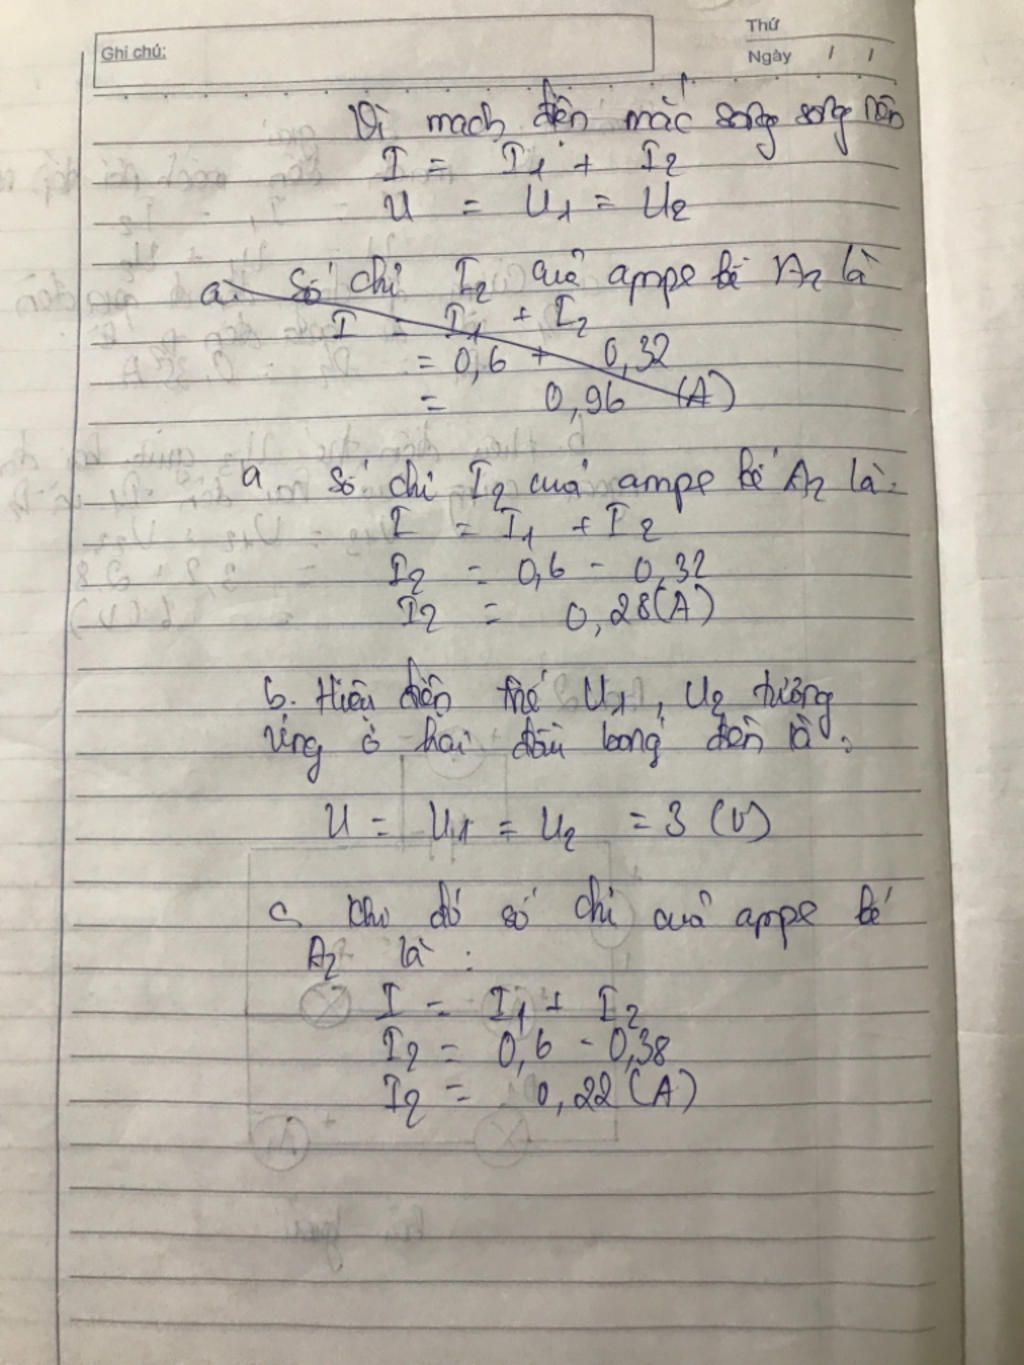 Ghi chú:
Thứ
Ngày / /
Vì mạch điện mắc song song nên
I = I1 + I2
U = U1 = U2
a. Số chỉ I2 của ampe kế A2 là
I = I1 + I2
= 0,6 + 0,32
= 0,96 (A)
a. Số chỉ I2 của ampe kế A2 là:
I = I1 + I2
I2 = 0,6 - 0,32
I2 = 0,28(A)
b. Hiệu điện thế U1, U2 tương
ứng ở hai đầu bóng đèn là:
U = U1 = U2 = 3 (V)
c. Khi đó số chỉ của ampe kế
A2 là :
I = I1 + I2
I2 = 0,6 - 0,38
I2 = 0,22(A)